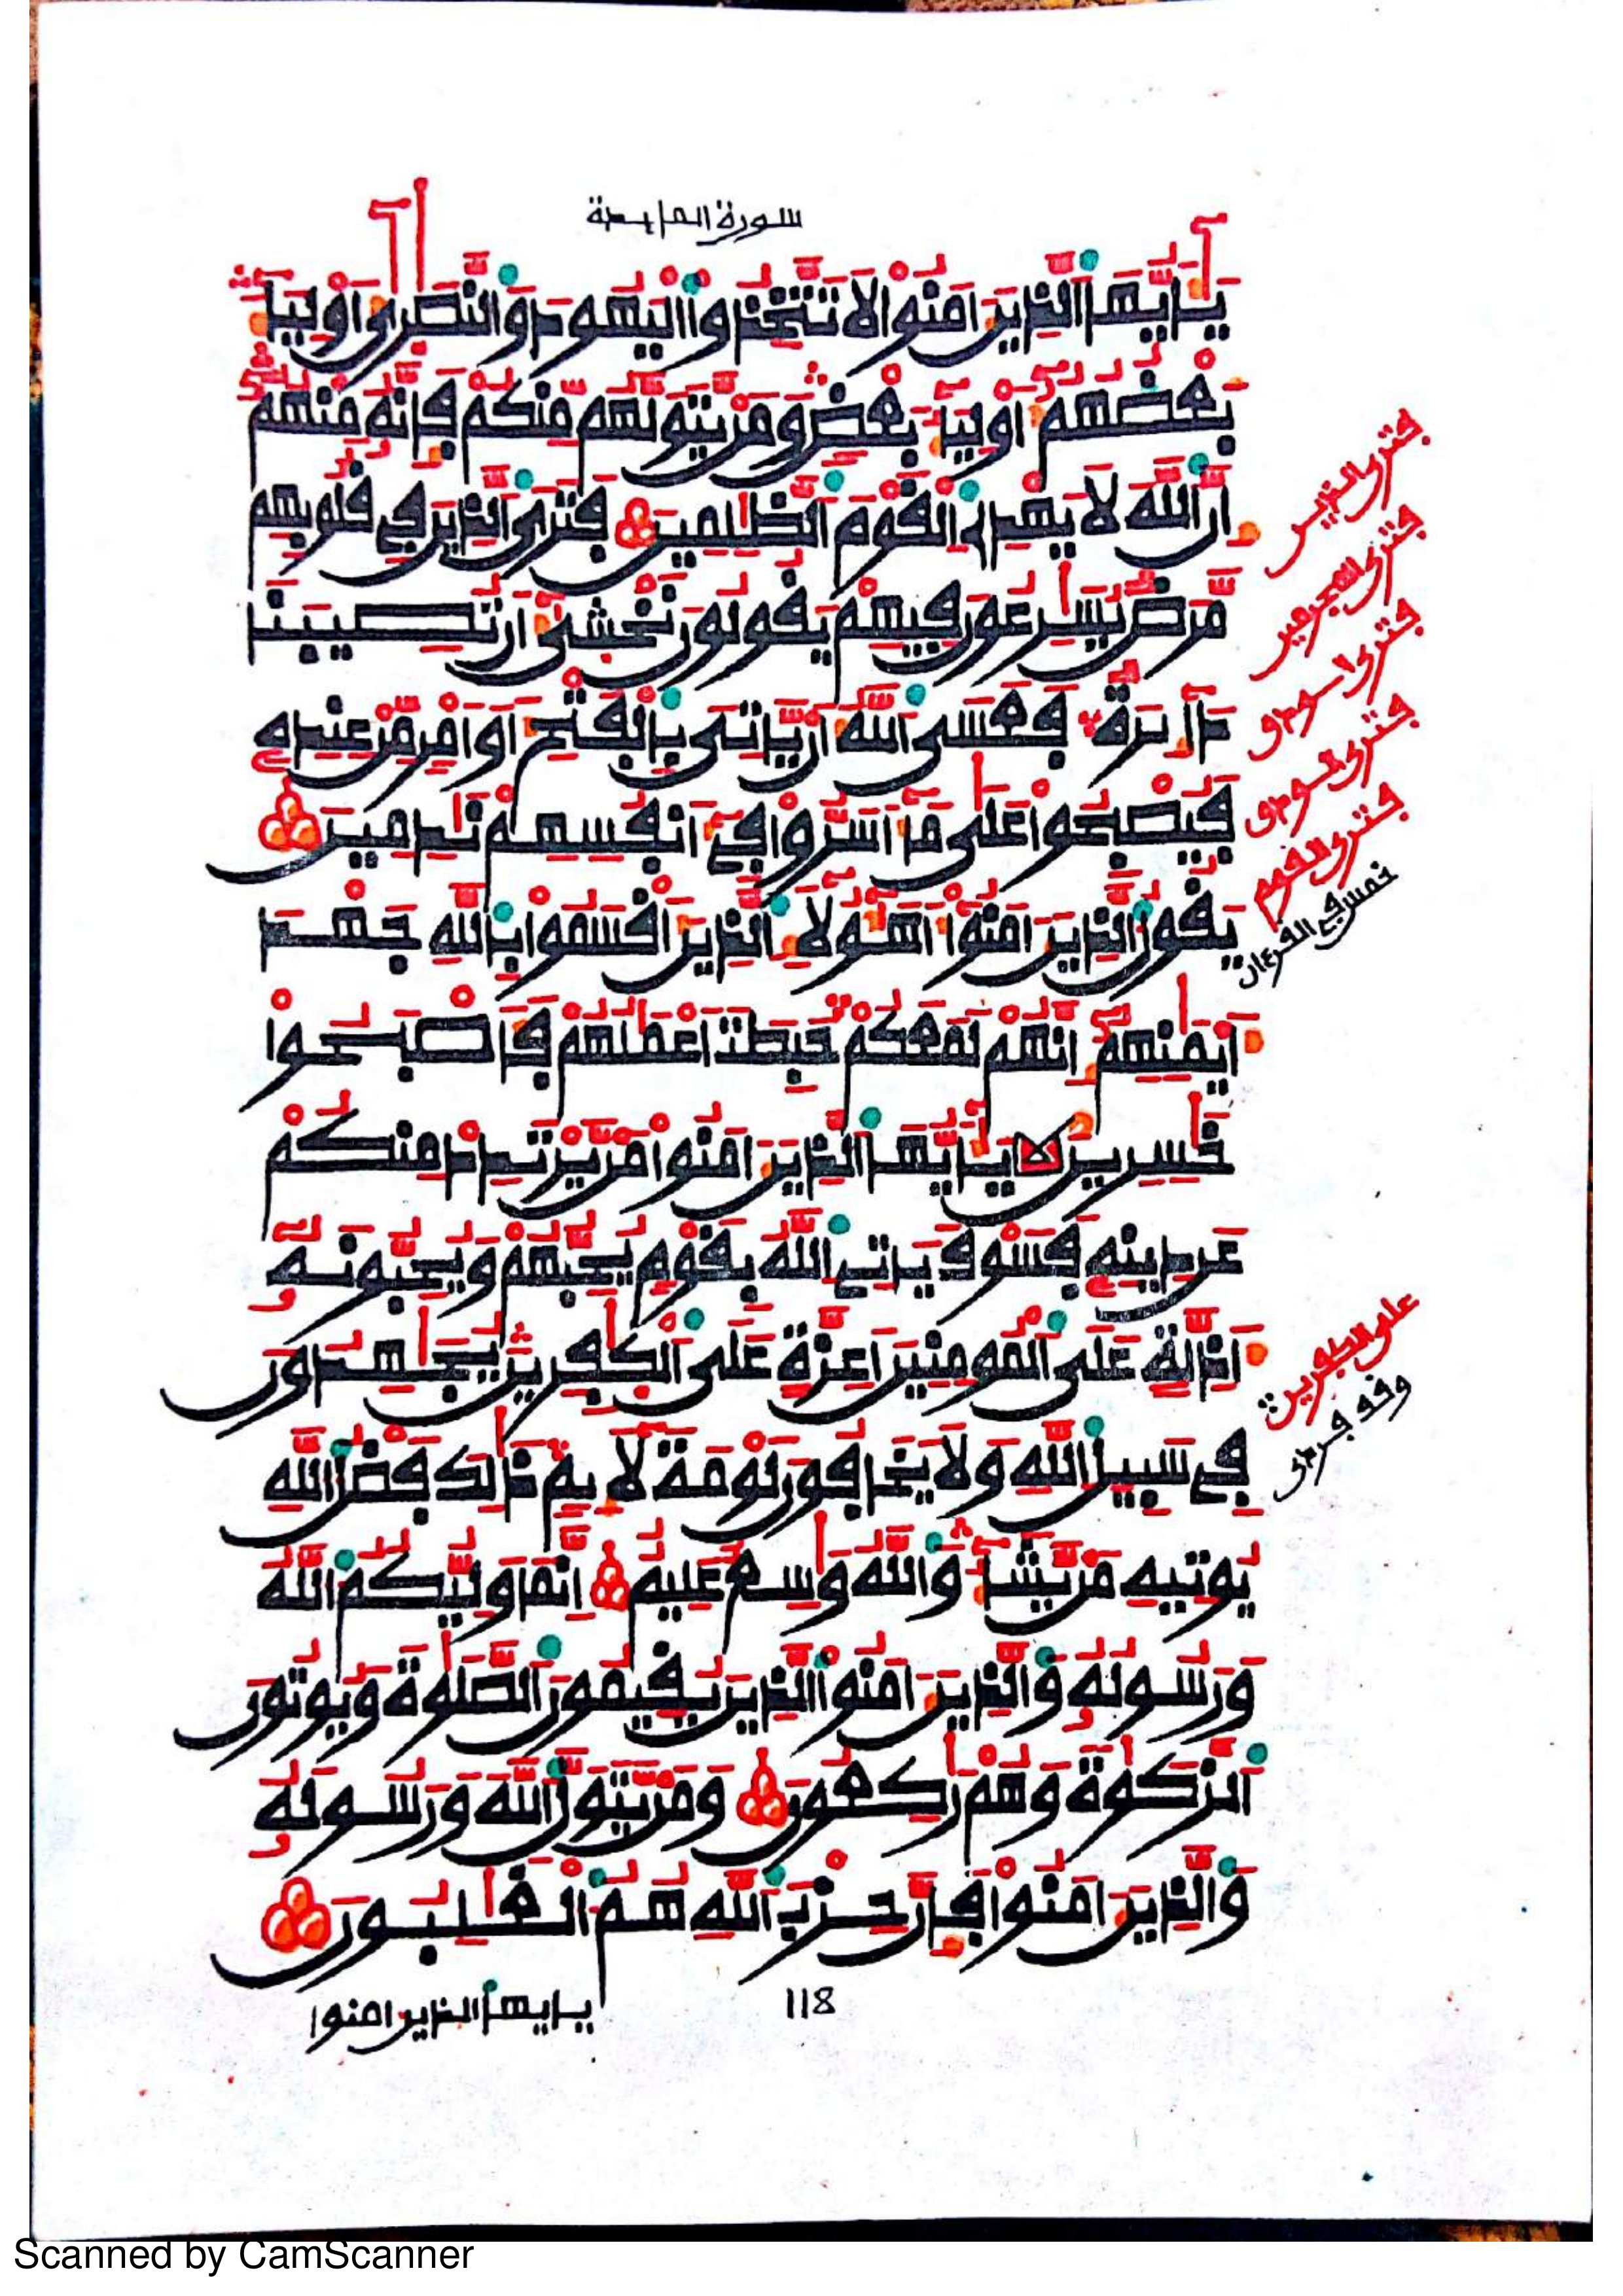 سورة المايدة
يَٰٓأَيُّهَا ٱلَّذِينَ ءَامَنُواْ لَا تَتَّخِذُواْ ٱلْيَهُودَ وَٱلنَّصَٰرَىٰٓ أَوْلِيَآءَ
بَعْضُهُمُۥٓ أَوْلِيَآءُ بَعْضٖ وَمَنْ يَّتَوَلَّهُم مِّنكُمْ فَإِنَّهُۥ مِنْهُمُۥٓ
إِنَّ ٱللَّهَ لَا يَهْدِے ٱلْقَوْمَ ٱلظَّٰلِمِينَ فَتَرَى ٱلَّذِينَ فِے قُلُوبِهِم
مَّرَضٞ يُسَٰرِعُونَ فِيهِمْ يَقُولُونَ نَخْشَىٰٓ أَن تُصِيبَنَا
دَآئِرَةٞ فَعَسَى ٱللَّهُ أَنْ يَّاتِىَ بِٱلْفَتْحِ أَوَ اَمْرٖ مِّنْ عِندِهِۦ
فَيُصْبِحُواْ عَلَىٰ مَآ أَسَرُّواْ فِےٓ أَنفُسِهِمْ نَٰدِمِينَ
يَقُولُ ٱلَّذِينَ ءَامَنُوٓاْ أَهَٰٓؤُلَآءِ ٱلَّذِينَ أَقْسَمُواْ بِٱللَّهِ جَهْدَ
أَيْمَٰنِهِمُۥٓ إِنَّهُمْ لَمَعَكُمْ حَبِطَتَ اَعْمَٰلُهُمْ فَأَصْبَحُواْ
خَٰسِرِينَ يَٰٓأَيُّهَا ٱلَّذِينَ ءَامَنُواْ مَنْ يَّرْتَدِدْ مِنكُمْ
عَن دِينِهِۦ فَسَوْفَ يَاتِے ٱللَّهُ بِقَوْمٖ يُحِبُّهُمْ وَيُحِبُّونَهُۥٓ
أَذِلَّةٍ عَلَى ٱلْمُومِنِينَ أَعِزَّةٍ عَلَى ٱلْكَٰفِرِينَ يُجَٰهِدُونَ
فِے سَبِيلِ ٱللَّهِ وَلَا يَخَافُونَ لَوْمَةَ لَآئِمٖ ذَٰلِكَ فَضْلُ ٱللَّهِ
يُوتِيهِ مَنْ يَّشَآءُ وَٱللَّهُ وَٰسِعٌ عَلِيمٌ إِنَّمَا وَلِيُّكُمُ ٱللَّهُ
وَرَسُولُهُۥ وَٱلَّذِينَ ءَامَنُواْ ٱلَّذِينَ يُقِيمُونَ ٱلصَّلَوٰةَ وَيُوتُونَ
ٱلزَّكَوٰةَ وَهُمْ رَٰكِعُونَ وَمَنْ يَّتَوَلَّ ٱللَّهَ وَرَسُولَهُۥ
وَٱلَّذِينَ ءَامَنُواْ فَإِنَّ حِزْبَ ٱللَّهِ هُمُ ٱلْغَٰلِبُونَ
118
يايها الذين امنوا
فترى الذين
فترى المجرمين
فترى الودق
فترى القوم
خمس في القرءان
على الكفرين
وقد فرى
Scanned by CamScanner